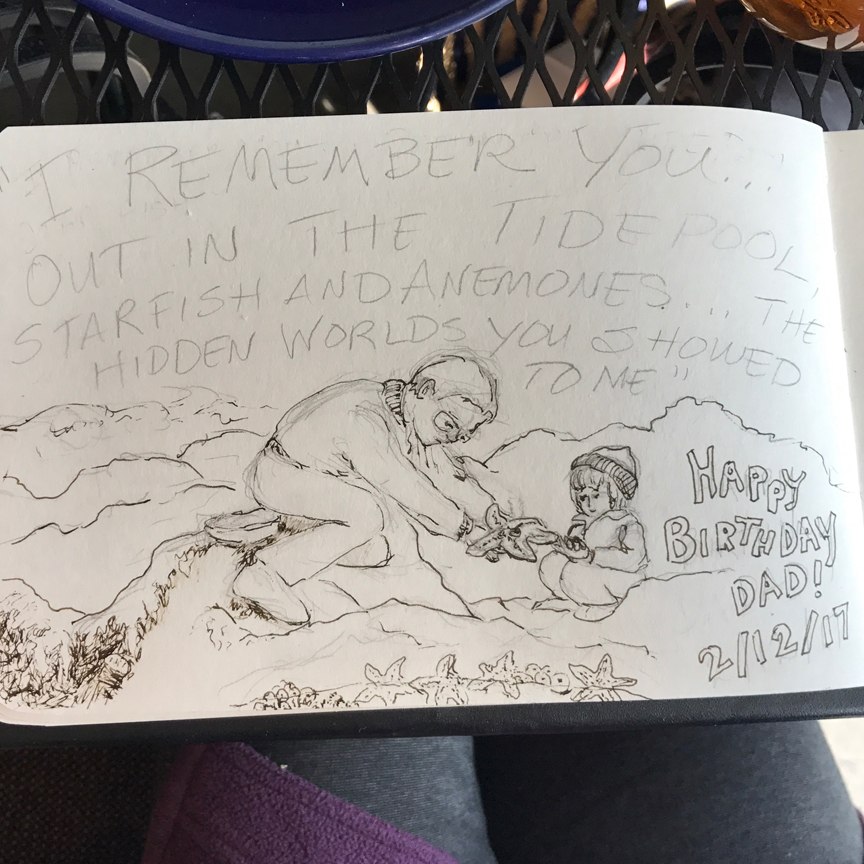 "I REMEMBER YOU...
OUT IN THE TIDEPOOL,
STARFISH AND ANEMONES... THE
HIDDEN WORLDS YOU SHOWED
TO ME"
HAPPY
BIRTHDAY
DAD!
2/12/17